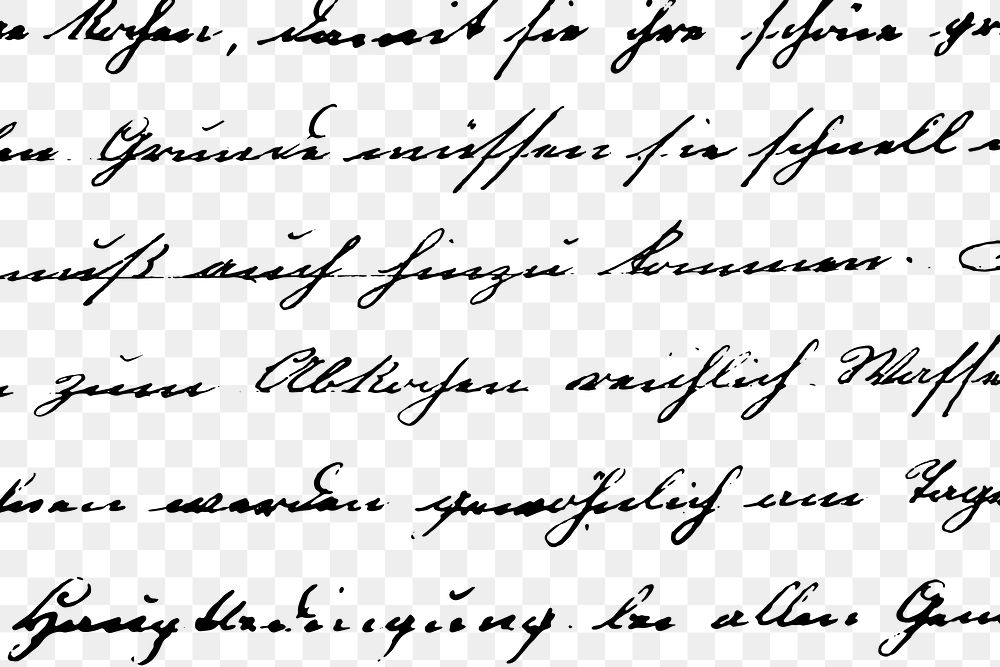 Kochen, damit sie ihre schöne
Grunde müssen sie schnell
muß auch hinzu kommen.
zum Abkochen reichlich Wasser
werden gewöhnlich am Tage
Hauptbedingung bei allen